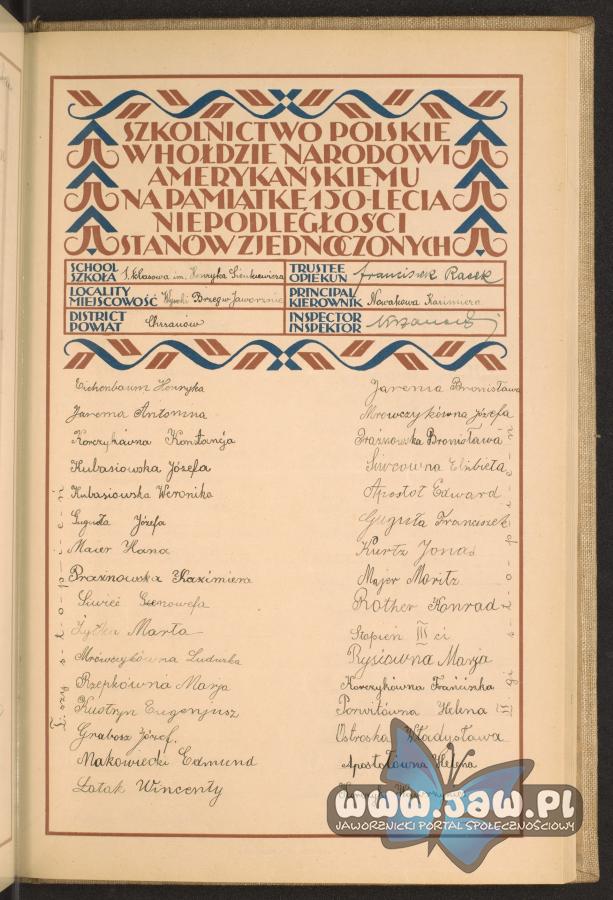 SZKOLNICTWO POLSKIE
W HOŁDZIE NARODOWI
AMERYKAŃSKIEMU
NA PAMIĄTKĘ 150-LECIA
NIEPODLEGŁOŚCI
STANÓW ZJEDNOCZONYCH
SCHOOL
SZKOŁA klasowa im. Henryka Sienkiewicza
LOCALITY
MIEJSCOWOŚĆ Brzeg Jaworznie
DISTRICT
POWIAT Chrzanów
TRUSTEE
OPIEKUN Franciszek Racek
PRINCIPAL
KIEROWNIK Nowakowa Kazimiera
INSPECTOR
INSPEKTOR
Eichenbaum Henryka
Jarema Antonina
Korczykówna Konstancja
Kubasiowska Józefa
Kubasiowska Weronika
Guguła Józefa
Maier Hana
Prażnowska Kazimiera
Siwieć Genowefa
Żytka Marta
Mrówczykówna Ludwika
Rzepkówna Marja
Kustryn Eugenjusz
Grabosz Józef.
Makowiecki Edmund
Łatak Wincenty
Jarema Bronisława
Mrowczykówna Józefa
Prażnowska Bronisława
Siwcówna Elżbieta
Apostoł Edward
Guguła Franciszek
Kurtz Jonas
Majer Moritz
Rother Konrad
Stopień III ci
Rysiówna Marja
Korczykówna Franciszka
Porwitówna Helena
Ostroska Władysława
Apostołówna Helena
www.jaw.pl
JAWORZNICKI PORTAL SPOŁECZNOŚCIOWY